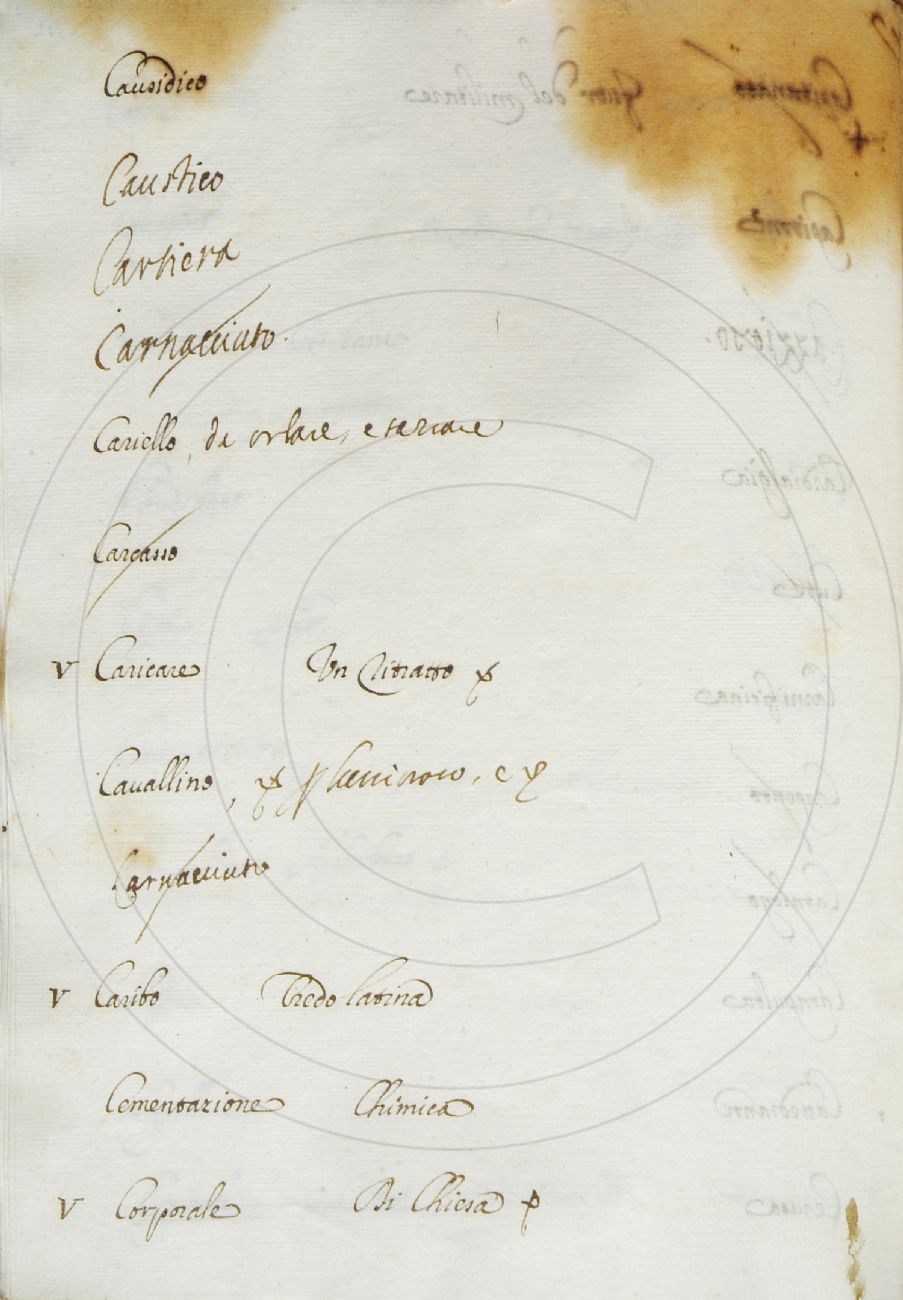 Causidico
Caustico
Cartiera
Carnacciuto
Cariello, da orlare, e
Carcasso
V Caricare Un Ritratto
Cavallino, e
Carnacciuto
V Caribo Credo latina
Cementazione Chimica
V Corporale Di Chiesa